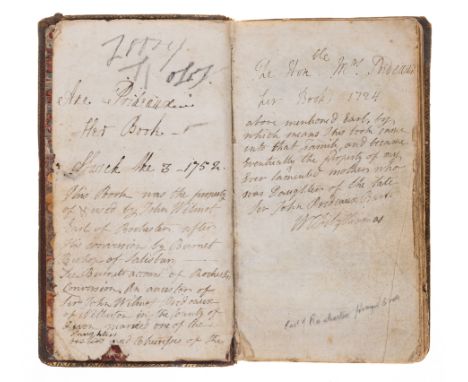 Ane Prideaux
Her Book
March the 3 1752
This Book was the property
of & used by John Wilmot
Earl of Rochester after
his conversion by Burnet
Bishop of Salisbury
See Burnets account of Rochester's
Conversion. An ancestor of
Sir John Wilmot Prideaux
of Netherton in the County of
Devon married one of the
daughters
and Coheiress of the
the
The Hon Mrs Prideaux
her Book 1724
above mentioned Earl, by
which means this book came
into that family, and became
eventually the property of my
ever lamented mother who
was Daughter of the late
Sir John Prideaux Bart.
Earl of Rochester